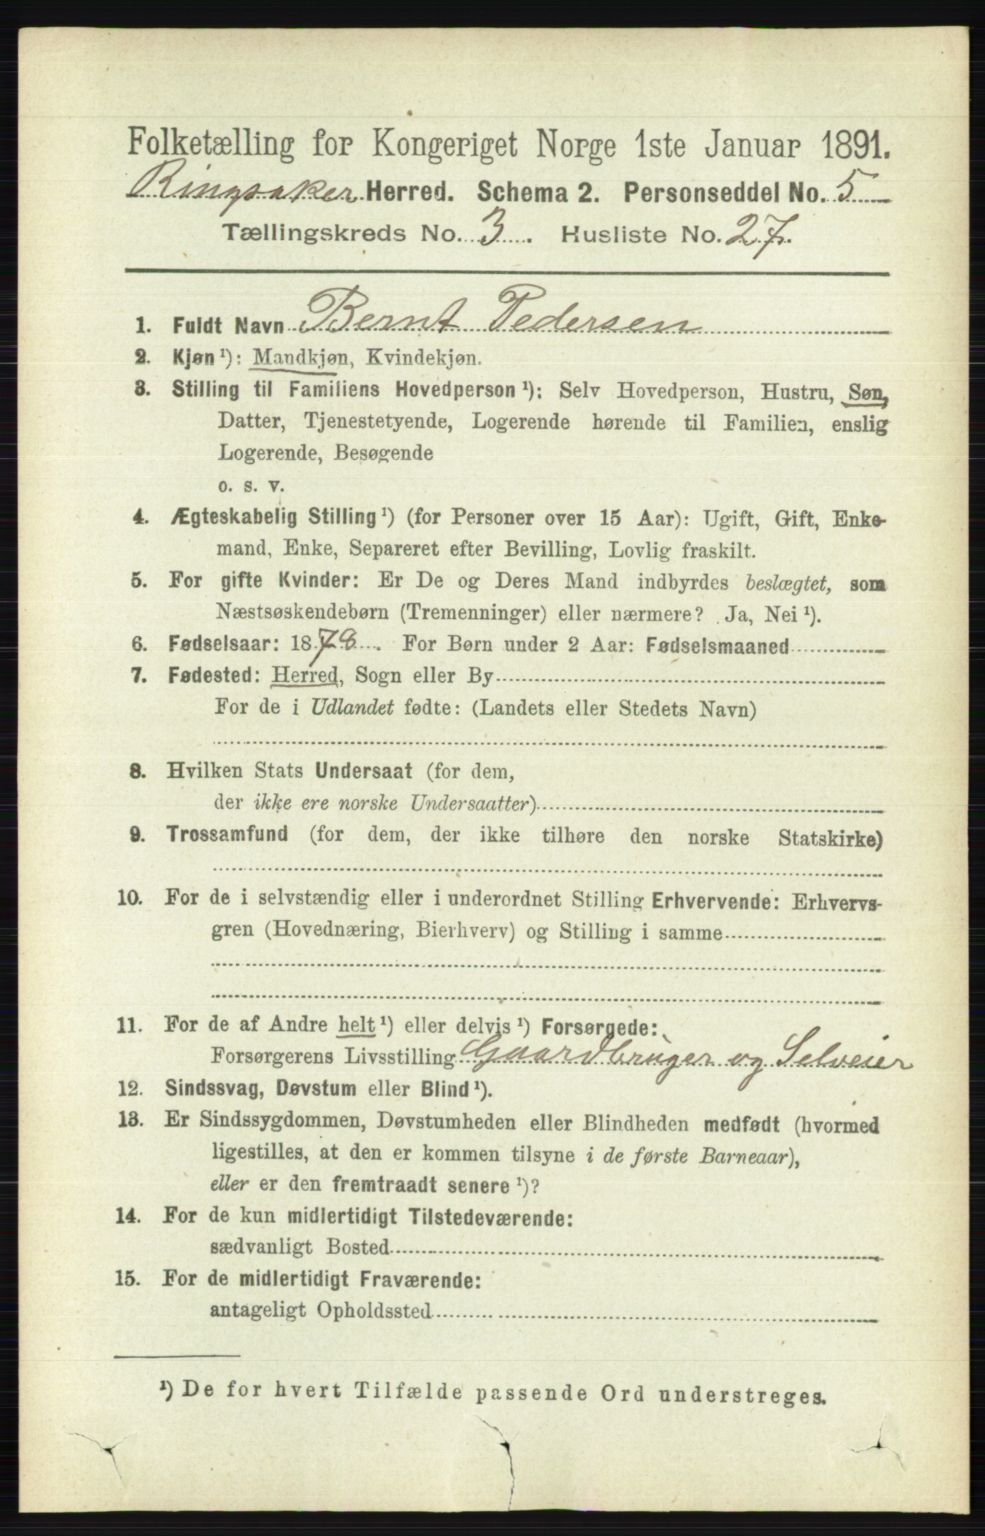 Folketælling for Kongeriget Norge 1ste Januar 1891.
Ringsaker Herred. Schema 2. Personseddel No. 5
Tællingskreds No. 3. Husliste No. 27.
1. Fuldt Navn Bernt Pedersen
2. Kjøn ¹): Mandkjøn, Kvindekjøn.
3. Stilling til Familiens Hovedperson ¹): Selv Hovedperson, Hustru, Søn,
Datter, Tjenestetyende, Logerende hørende til Familien, enslig
Logerende, Besøgende
o. s. v.
4. Ægteskabelig Stilling ¹) (for Personer over 15 Aar): Ugift, Gift, Enke-
mand, Enke, Separeret efter Bevilling, Lovlig fraskilt.
5. For gifte Kvinder: Er De og Deres Mand indbyrdes beslægtet, som
Næstsøskendebørn (Tremenninger) eller nærmere? Ja, Nei ¹).
6. Fødselsaar: 1878. For Børn under 2 Aar: Fødselsmaaned
7. Fødested: Herred, Sogn eller By
For de i Udlandet fødte: (Landets eller Stedets Navn)
8. Hvilken Stats Undersaat (for dem,
der ikke ere norske Undersaatter)
9. Trossamfund (for dem, der ikke tilhøre den norske Statskirke)
10. For de i selvstændig eller i underordnet Stilling Erhvervende: Erhvervs-
gren (Hovednæring, Bierhverv) og Stilling i samme
11. For de af Andre helt ¹) eller delvis ¹) Forsørgede:
Forsørgerens Livsstilling Gaardbruger og Selveier
12. Sindssvag, Døvstum eller Blind ¹).
13. Er Sindssygdommen, Døvstumheden eller Blindheden medfødt (hvormed
ligestilles, at den er kommen tilsyne i de første Barneaar),
eller er den fremtraadt senere ¹)?
14. For de kun midlertidigt Tilstedeværende:
sædvanligt Bosted
15. For de midlertidigt Fraværende:
antageligt Opholdssted
¹) De for hvert Tilfælde passende Ord understreges.